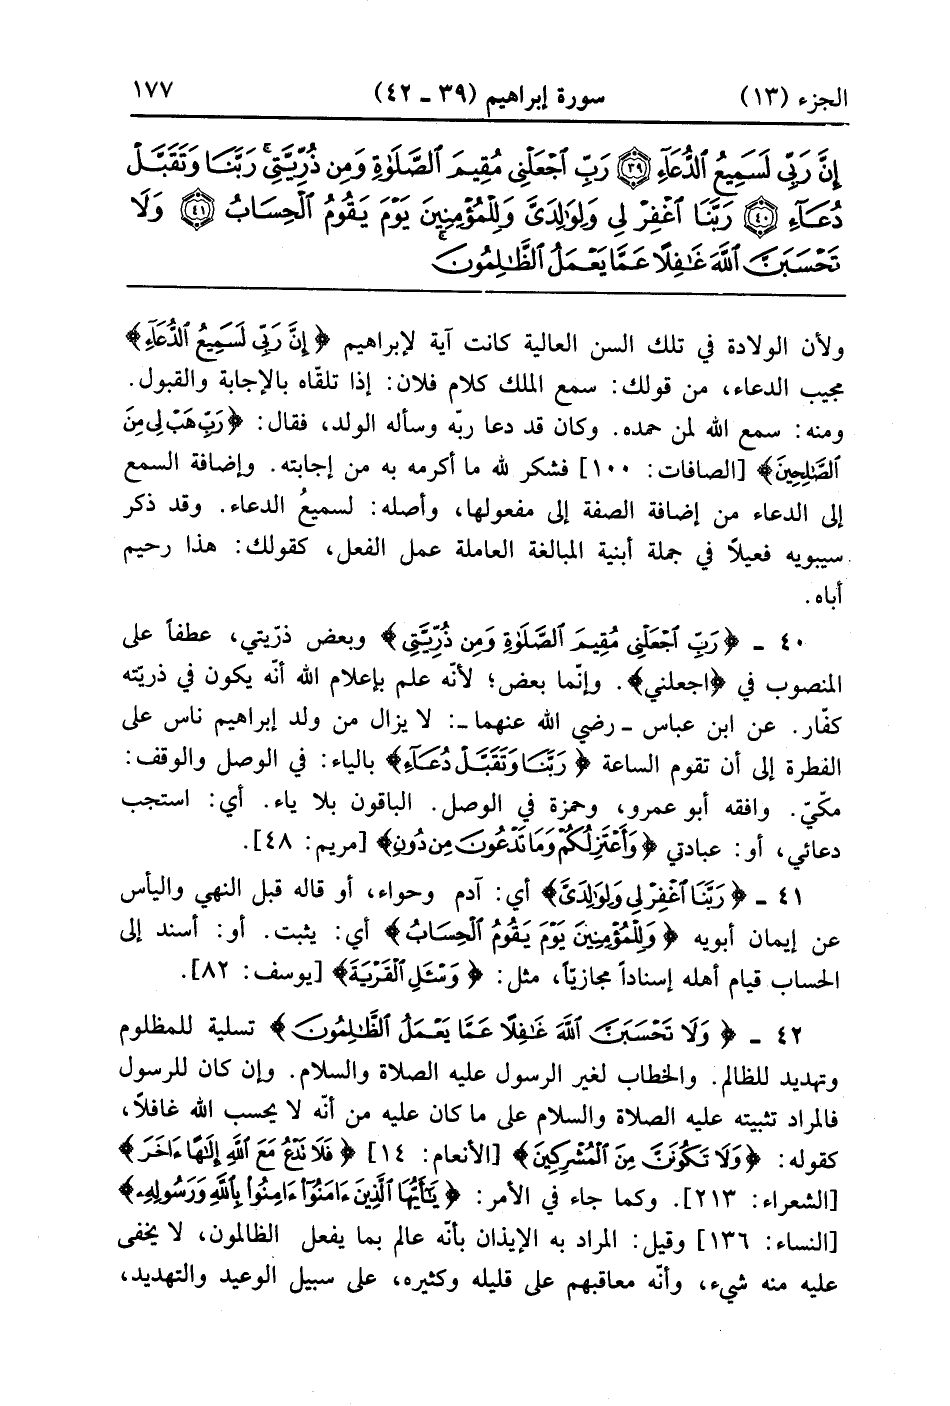 الجزء (١٣) سورة إبراهيم (٣٩ ـ ٤٢) ١٧٧
إِنَّ رَبِّي لَسَمِيعُ ٱلدُّعَآءِ ٣٩ رَبِّ ٱجْعَلْنِي مُقِيمَ ٱلصَّلَوٰةِ وَمِن ذُرِّيَّتِي رَبَّنَا وَتَقَبَّلْ
دُعَآءِ ٤٠ رَبَّنَا ٱغْفِرْ لِي وَلِوَٰلِدَيَّ وَلِلْمُؤْمِنِينَ يَوْمَ يَقُومُ ٱلْحِسَابُ ٤١ وَلَا
تَحْسَبَنَّ ٱللَّهَ غَٰفِلًا عَمَّا يَعْمَلُ ٱلظَّٰلِمُونَ
ولأن الولادة في تلك السن العالية كانت آية لإبراهيم ﴿إِنَّ رَبِّي لَسَمِيعُ ٱلدُّعَآءِ﴾
مجيب الدعاء، من قولك: سمع الملك كلام فلان: إذا تلقّاه بالإجابة والقبول.
ومنه: سمع الله لمن حمده. وكان قد دعا ربّه وسأله الولد، فقال: ﴿رَبِّ هَبْ لِي مِنَ
ٱلصَّٰلِحِينَ﴾ [الصافات: ١٠٠] فشكر لله ما أكرمه به من إجابته. وإضافة السمع
إلى الدعاء من إضافة الصفة إلى مفعولها، وأصله: لسميعُ الدعاء. وقد ذكر
سيبويه فعيلاً في جملة أبنية المبالغة العاملة عمل الفعل، كقولك: هذا رحيم
أباه.
٤٠ ـ ﴿رَبِّ ٱجْعَلْنِي مُقِيمَ ٱلصَّلَوٰةِ وَمِن ذُرِّيَّتِي﴾ وبعض ذرّيتي، عطفاً على
المنصوب في ﴿اجعلني﴾. وإنّما بعض؛ لأنّه علم بإعلام الله أنّه يكون في ذريّته
كفّار. عن ابن عباس ـ رضي الله عنهما ـ: لا يزال من ولد إبراهيم ناس على
الفطرة إلى أن تقوم الساعة ﴿رَبَّنَا وَتَقَبَّلْ دُعَآءِ﴾ بالياء: في الوصل والوقف:
مكّيّ. وافقه أبو عمرو، وحمزة في الوصل. الباقون بلا ياء. أي: استجب
دعائي، أو: عبادتي ﴿وَأَعْتَزِلُكُمْ وَمَا تَدْعُونَ مِن دُونِ﴾ [مريم: ٤٨].
٤١ ـ ﴿رَبَّنَا ٱغْفِرْ لِي وَلِوَٰلِدَيَّ﴾ أي: آدم وحواء، أو قاله قبل النهي واليأس
عن إيمان أبويه ﴿وَلِلْمُؤْمِنِينَ يَوْمَ يَقُومُ ٱلْحِسَابُ﴾ أي: يثبت. أو: أسند إلى
الحساب قيام أهله إسناداً مجازيّاً، مثل: ﴿وَسْـَٔلِ ٱلْقَرْيَةَ﴾ [يوسف: ٨٢].
٤٢ ـ ﴿وَلَا تَحْسَبَنَّ ٱللَّهَ غَٰفِلًا عَمَّا يَعْمَلُ ٱلظَّٰلِمُونَ﴾ تسلية للمظلوم
وتهديد للظالم. والخطاب لغير الرسول عليه الصلاة والسلام. وإن كان للرسول
فالمراد تثبيته عليه الصلاة والسلام على ما كان عليه من أنّه لا يحسب الله غافلاً،
كقوله: ﴿وَلَا تَكُونَنَّ مِنَ ٱلْمُشْرِكِينَ﴾ [الأنعام: ١٤] ﴿فَلَا تَدْعُ مَعَ ٱللَّهِ إِلَٰهًا ءَاخَرَ﴾
[الشعراء: ٢١٣]. وكما جاء في الأمر: ﴿يَٰٓأَيُّهَا ٱلَّذِينَ ءَامَنُوٓا۟ ءَامِنُوا۟ بِٱللَّهِ وَرَسُولِهِۦ﴾
[النساء: ١٣٦] وقيل: المراد به الإيذان بأنّه عالم بما يفعل الظالمون، لا يخفى
عليه منه شيء، وأنّه معاقبهم على قليله وكثيره، على سبيل الوعيد والتهديد،